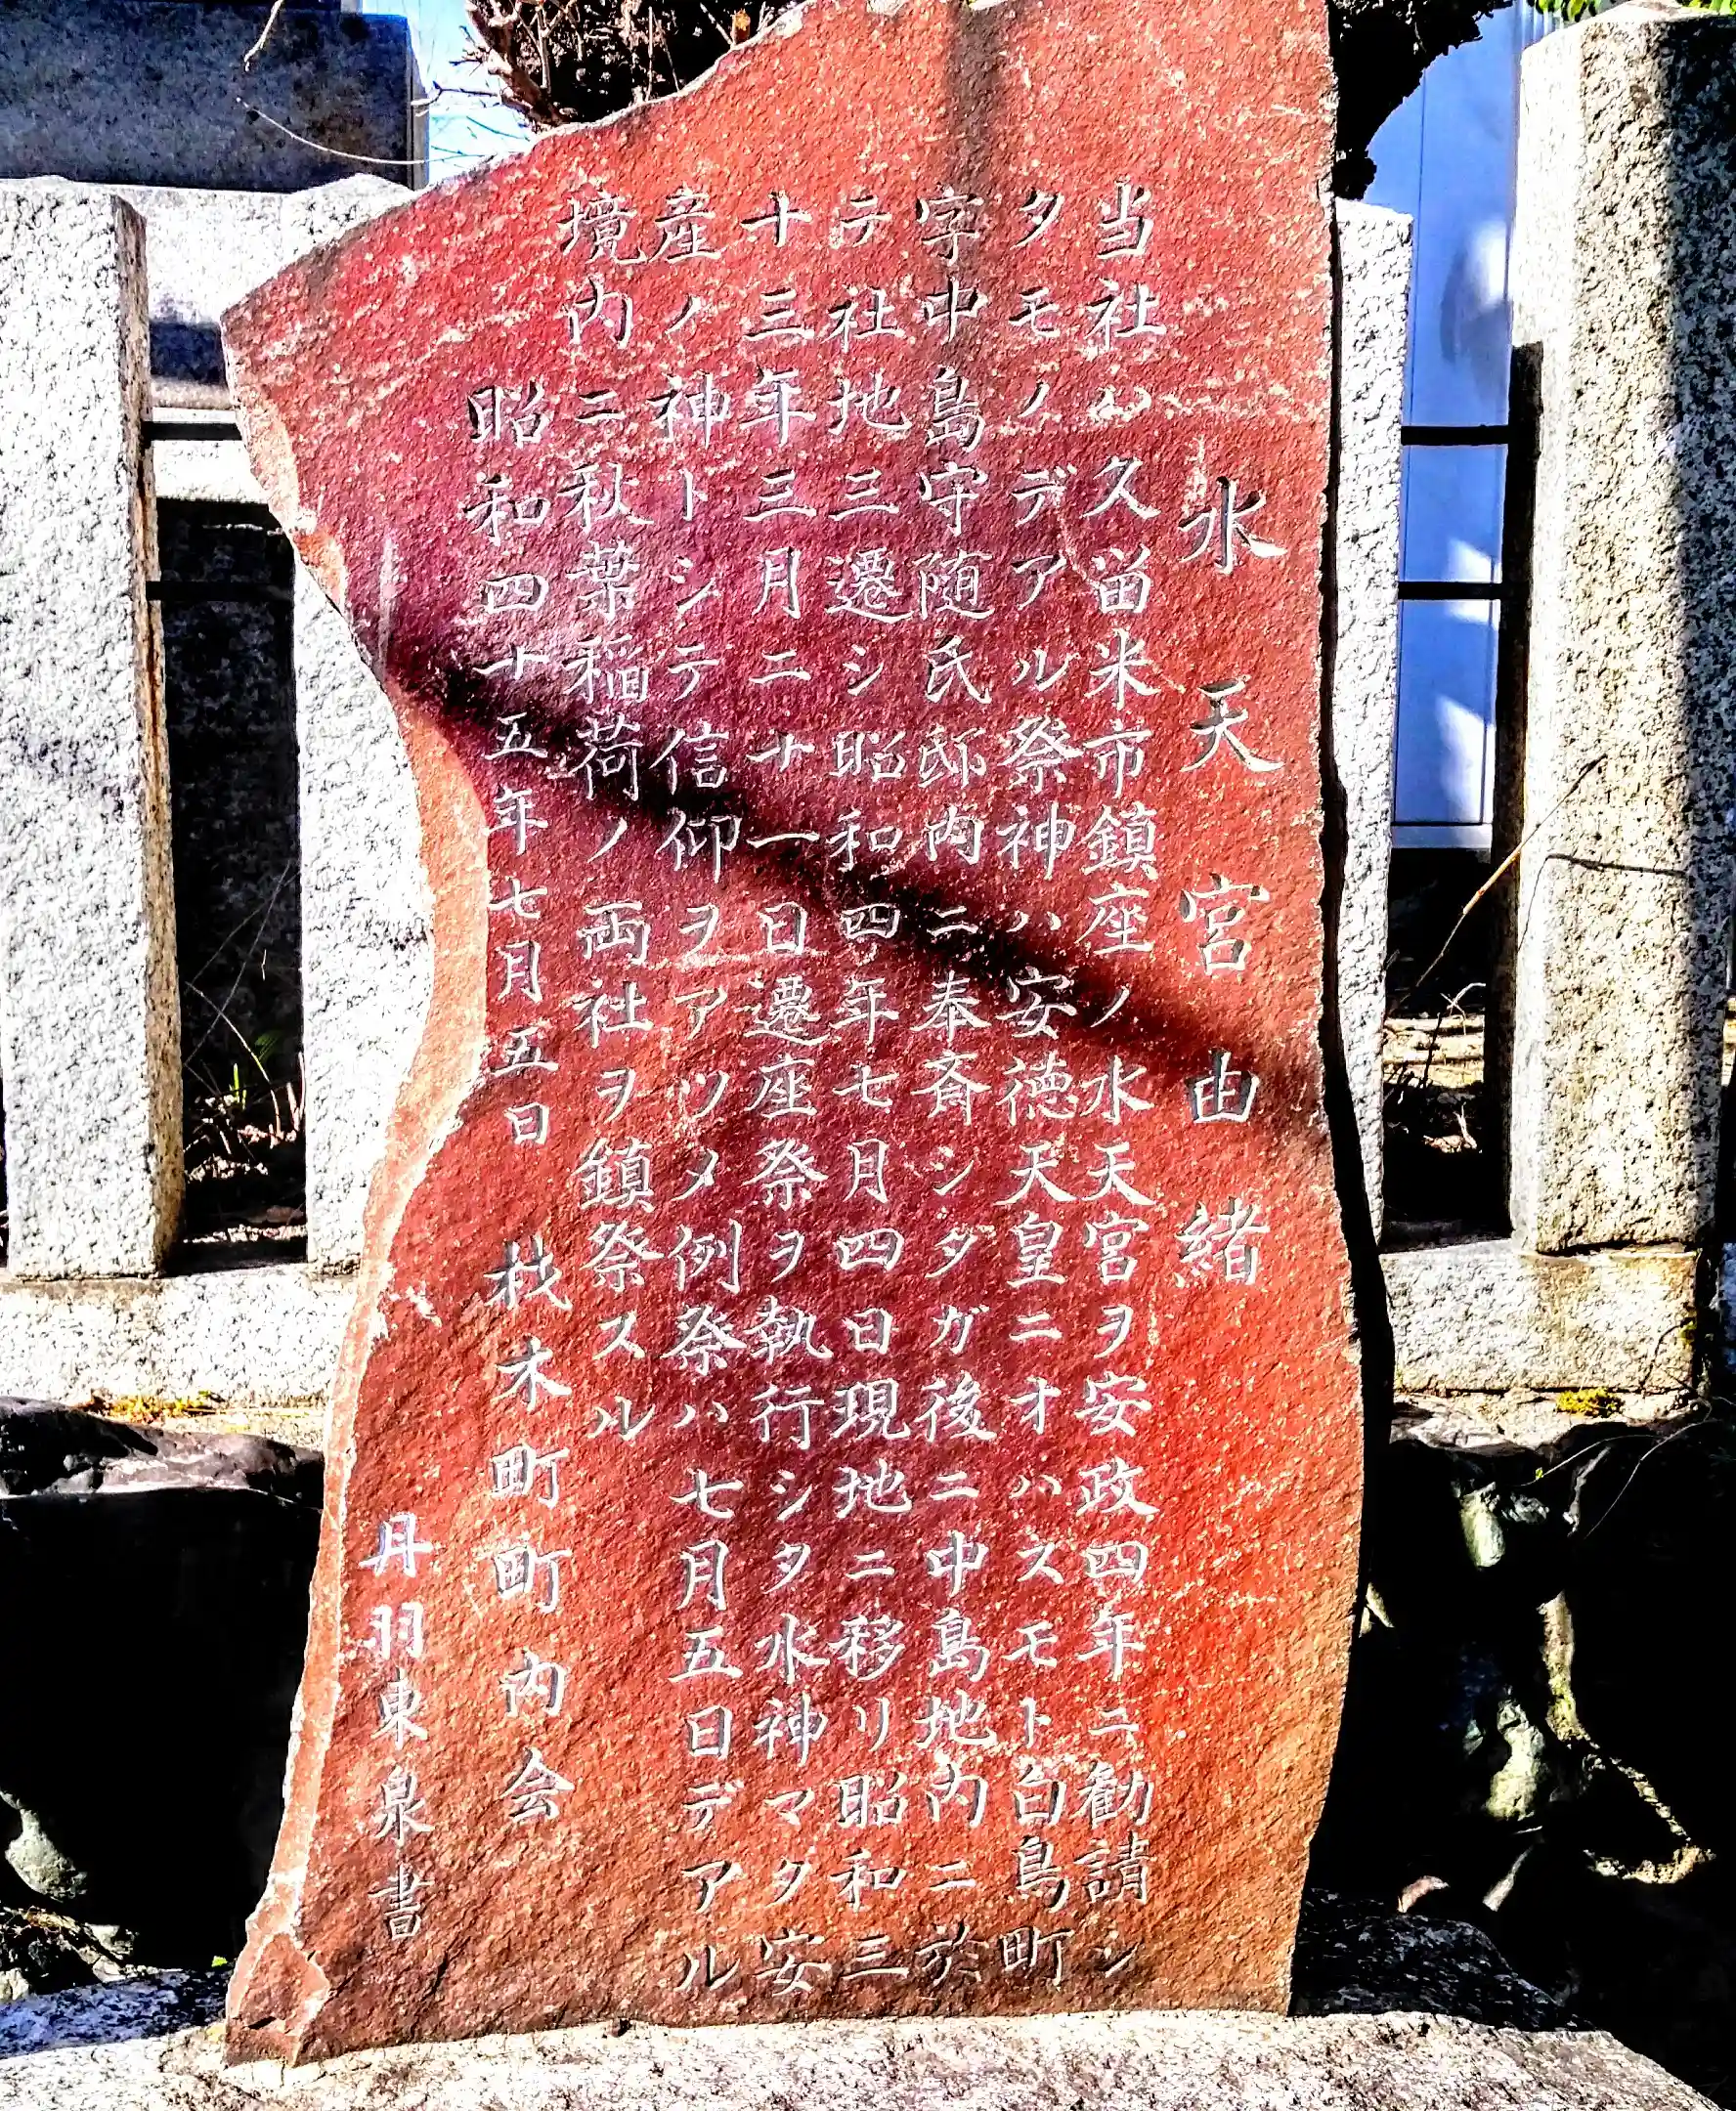 水天宮由緒
当社ハ久留米市鎮座ノ水天宮ヲ安政四年ニ勧請シ
タモノデアル祭神ハ安徳天皇ニオハスモト白鳥町
字中島守随氏邸内ニ奉斎シダガ後ニ中島地内ニ於
テ社地三遷シ昭和四年七月四日現地ニ移リ昭和三
十三年三月二十一日遷座祭ヲ執行シタ水神マタ安
産ノ神トシテ信仰ヲアツメ例祭ハ七月五日デアル
境内ニ秋葉稲荷ノ両社ヲ鎮祭スル
昭和四十五年七月五日 枝木町町内会
丹羽東泉書